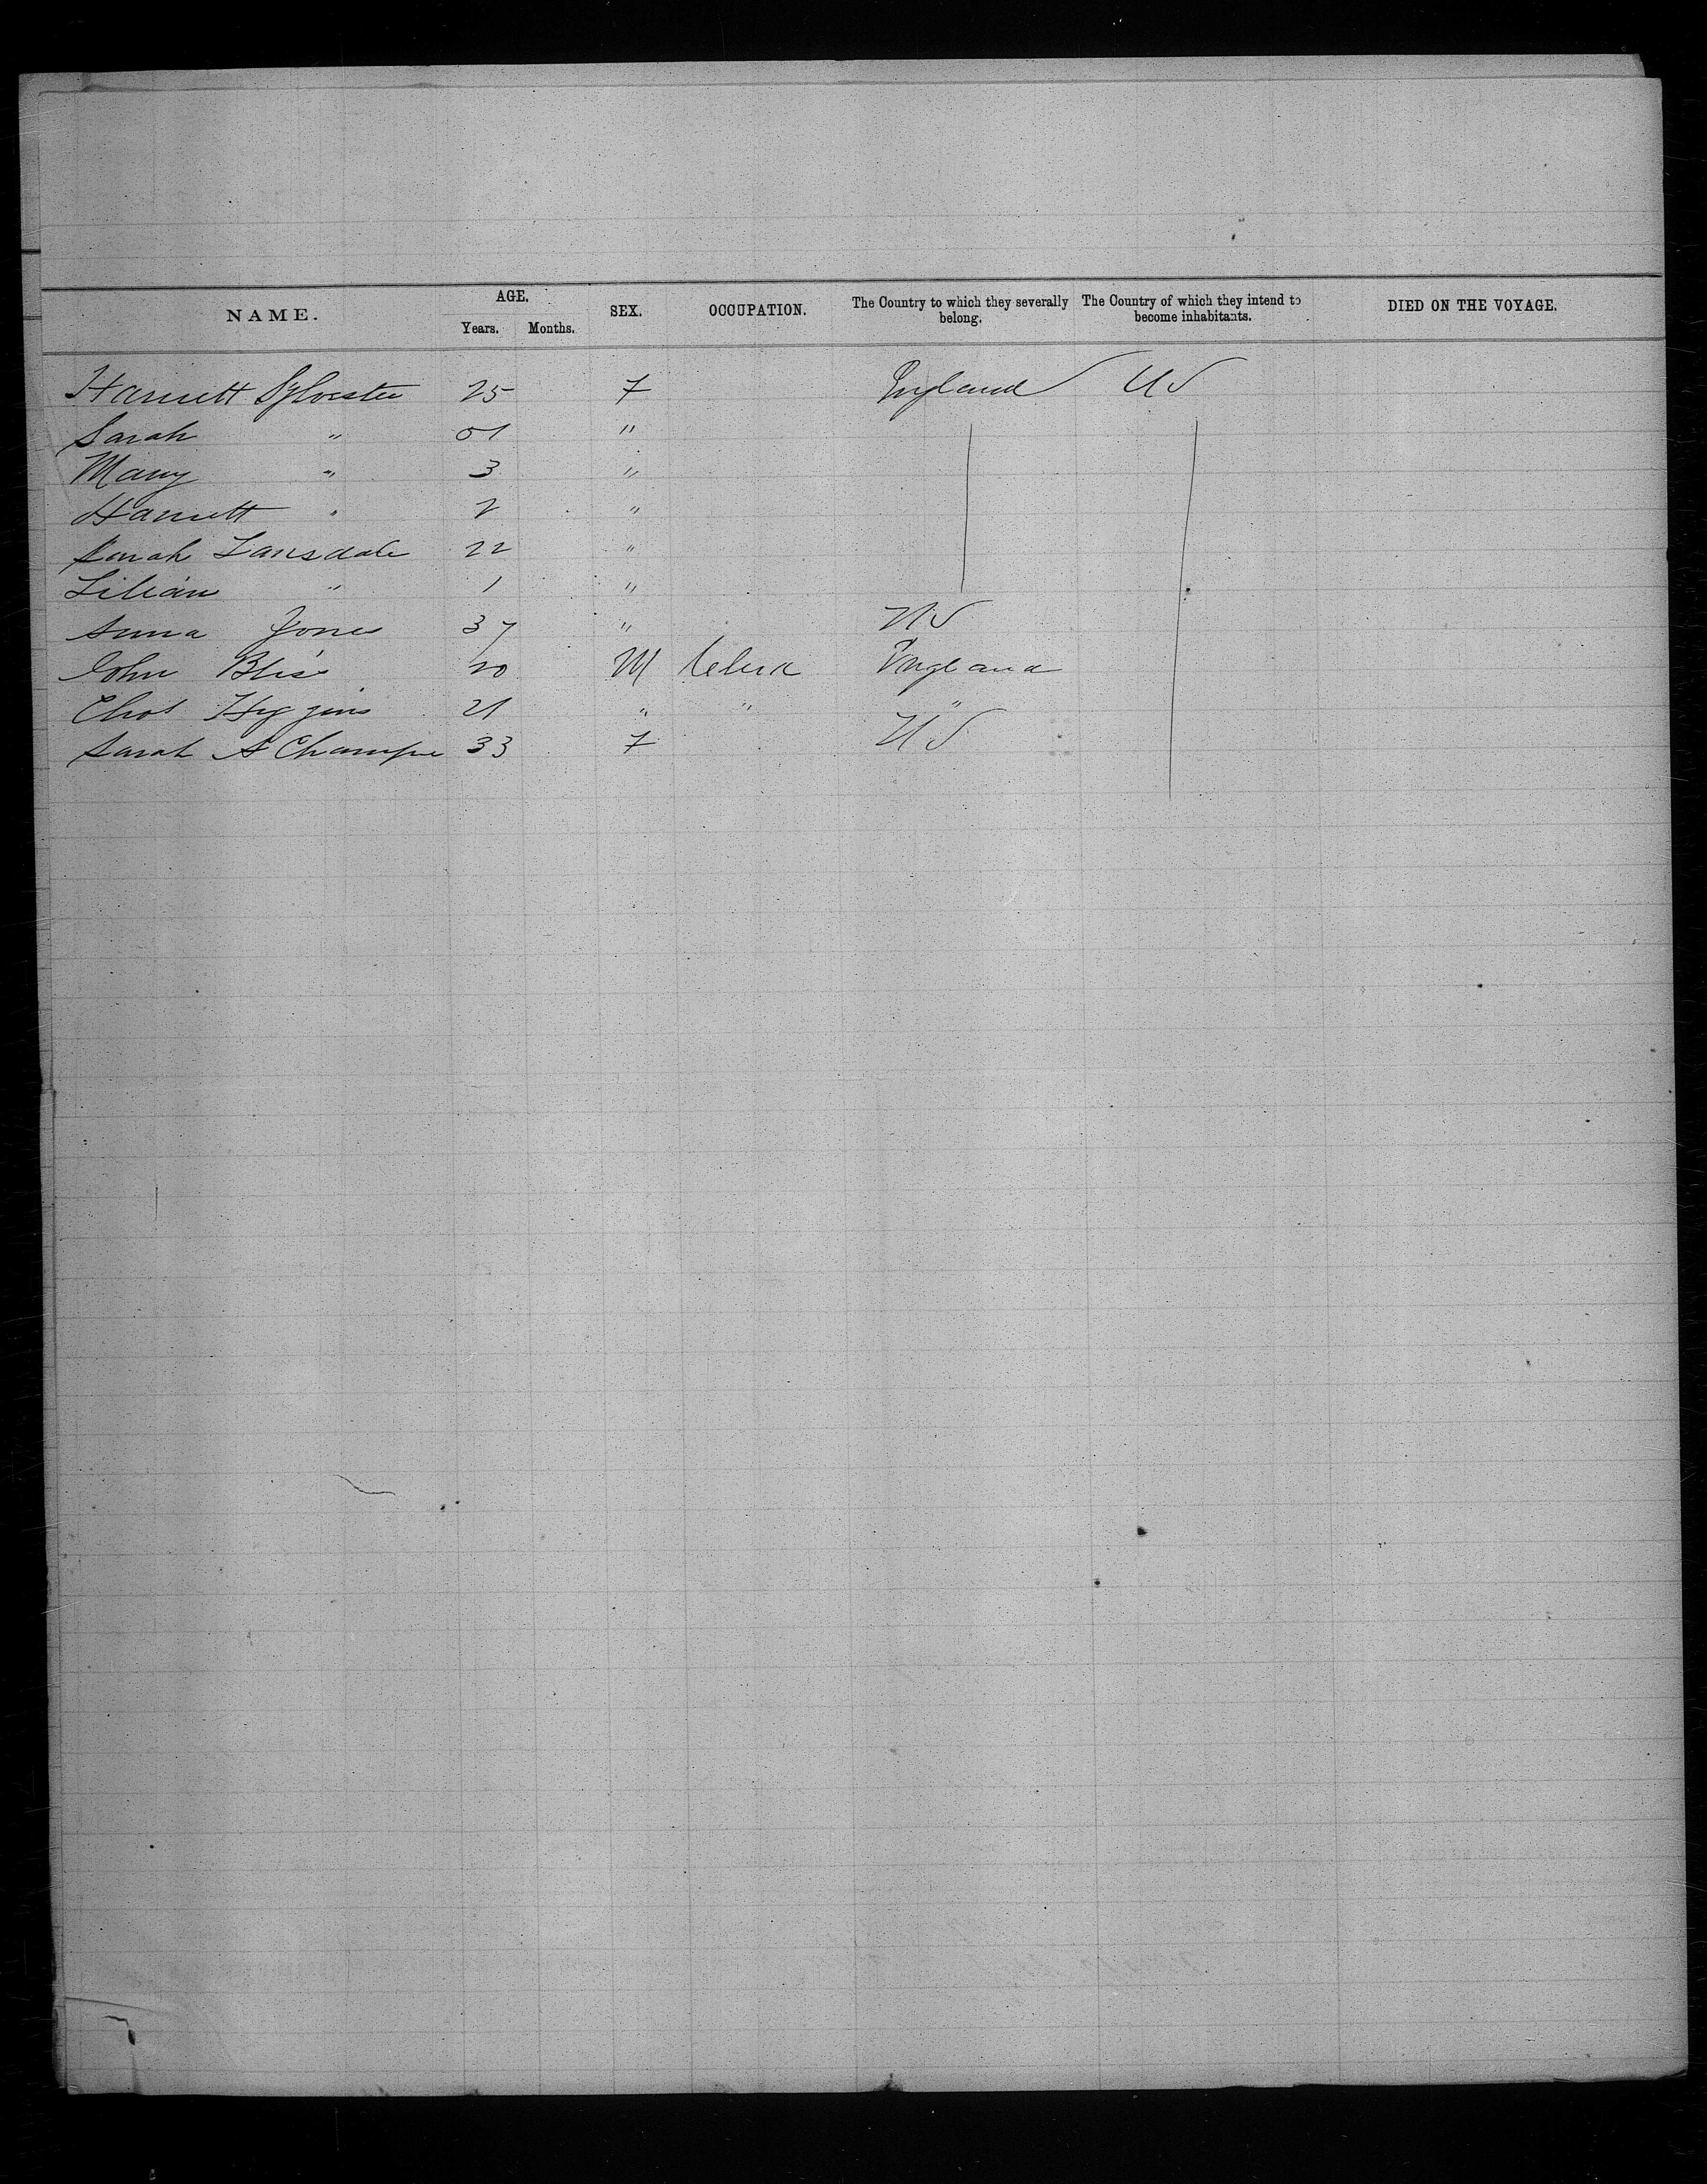 NAME. AGE. SEX. OCCUPATION. The Country to which they severally belong. The Country of which they intend to become inhabitants. DIED ON THE VOYAGE.
Years. Months.
Harriett Sylvester 25 F England US
Sarah " "
Mary " 3 "
Harriett " 2 "
Sarah Lansdale 22 "
Lilian " 1 "
Anna Jones 37 " US
John Bliss 20 M Clerk England
Chas Higgins 21 " " "
Sarah A Champe 33 F US